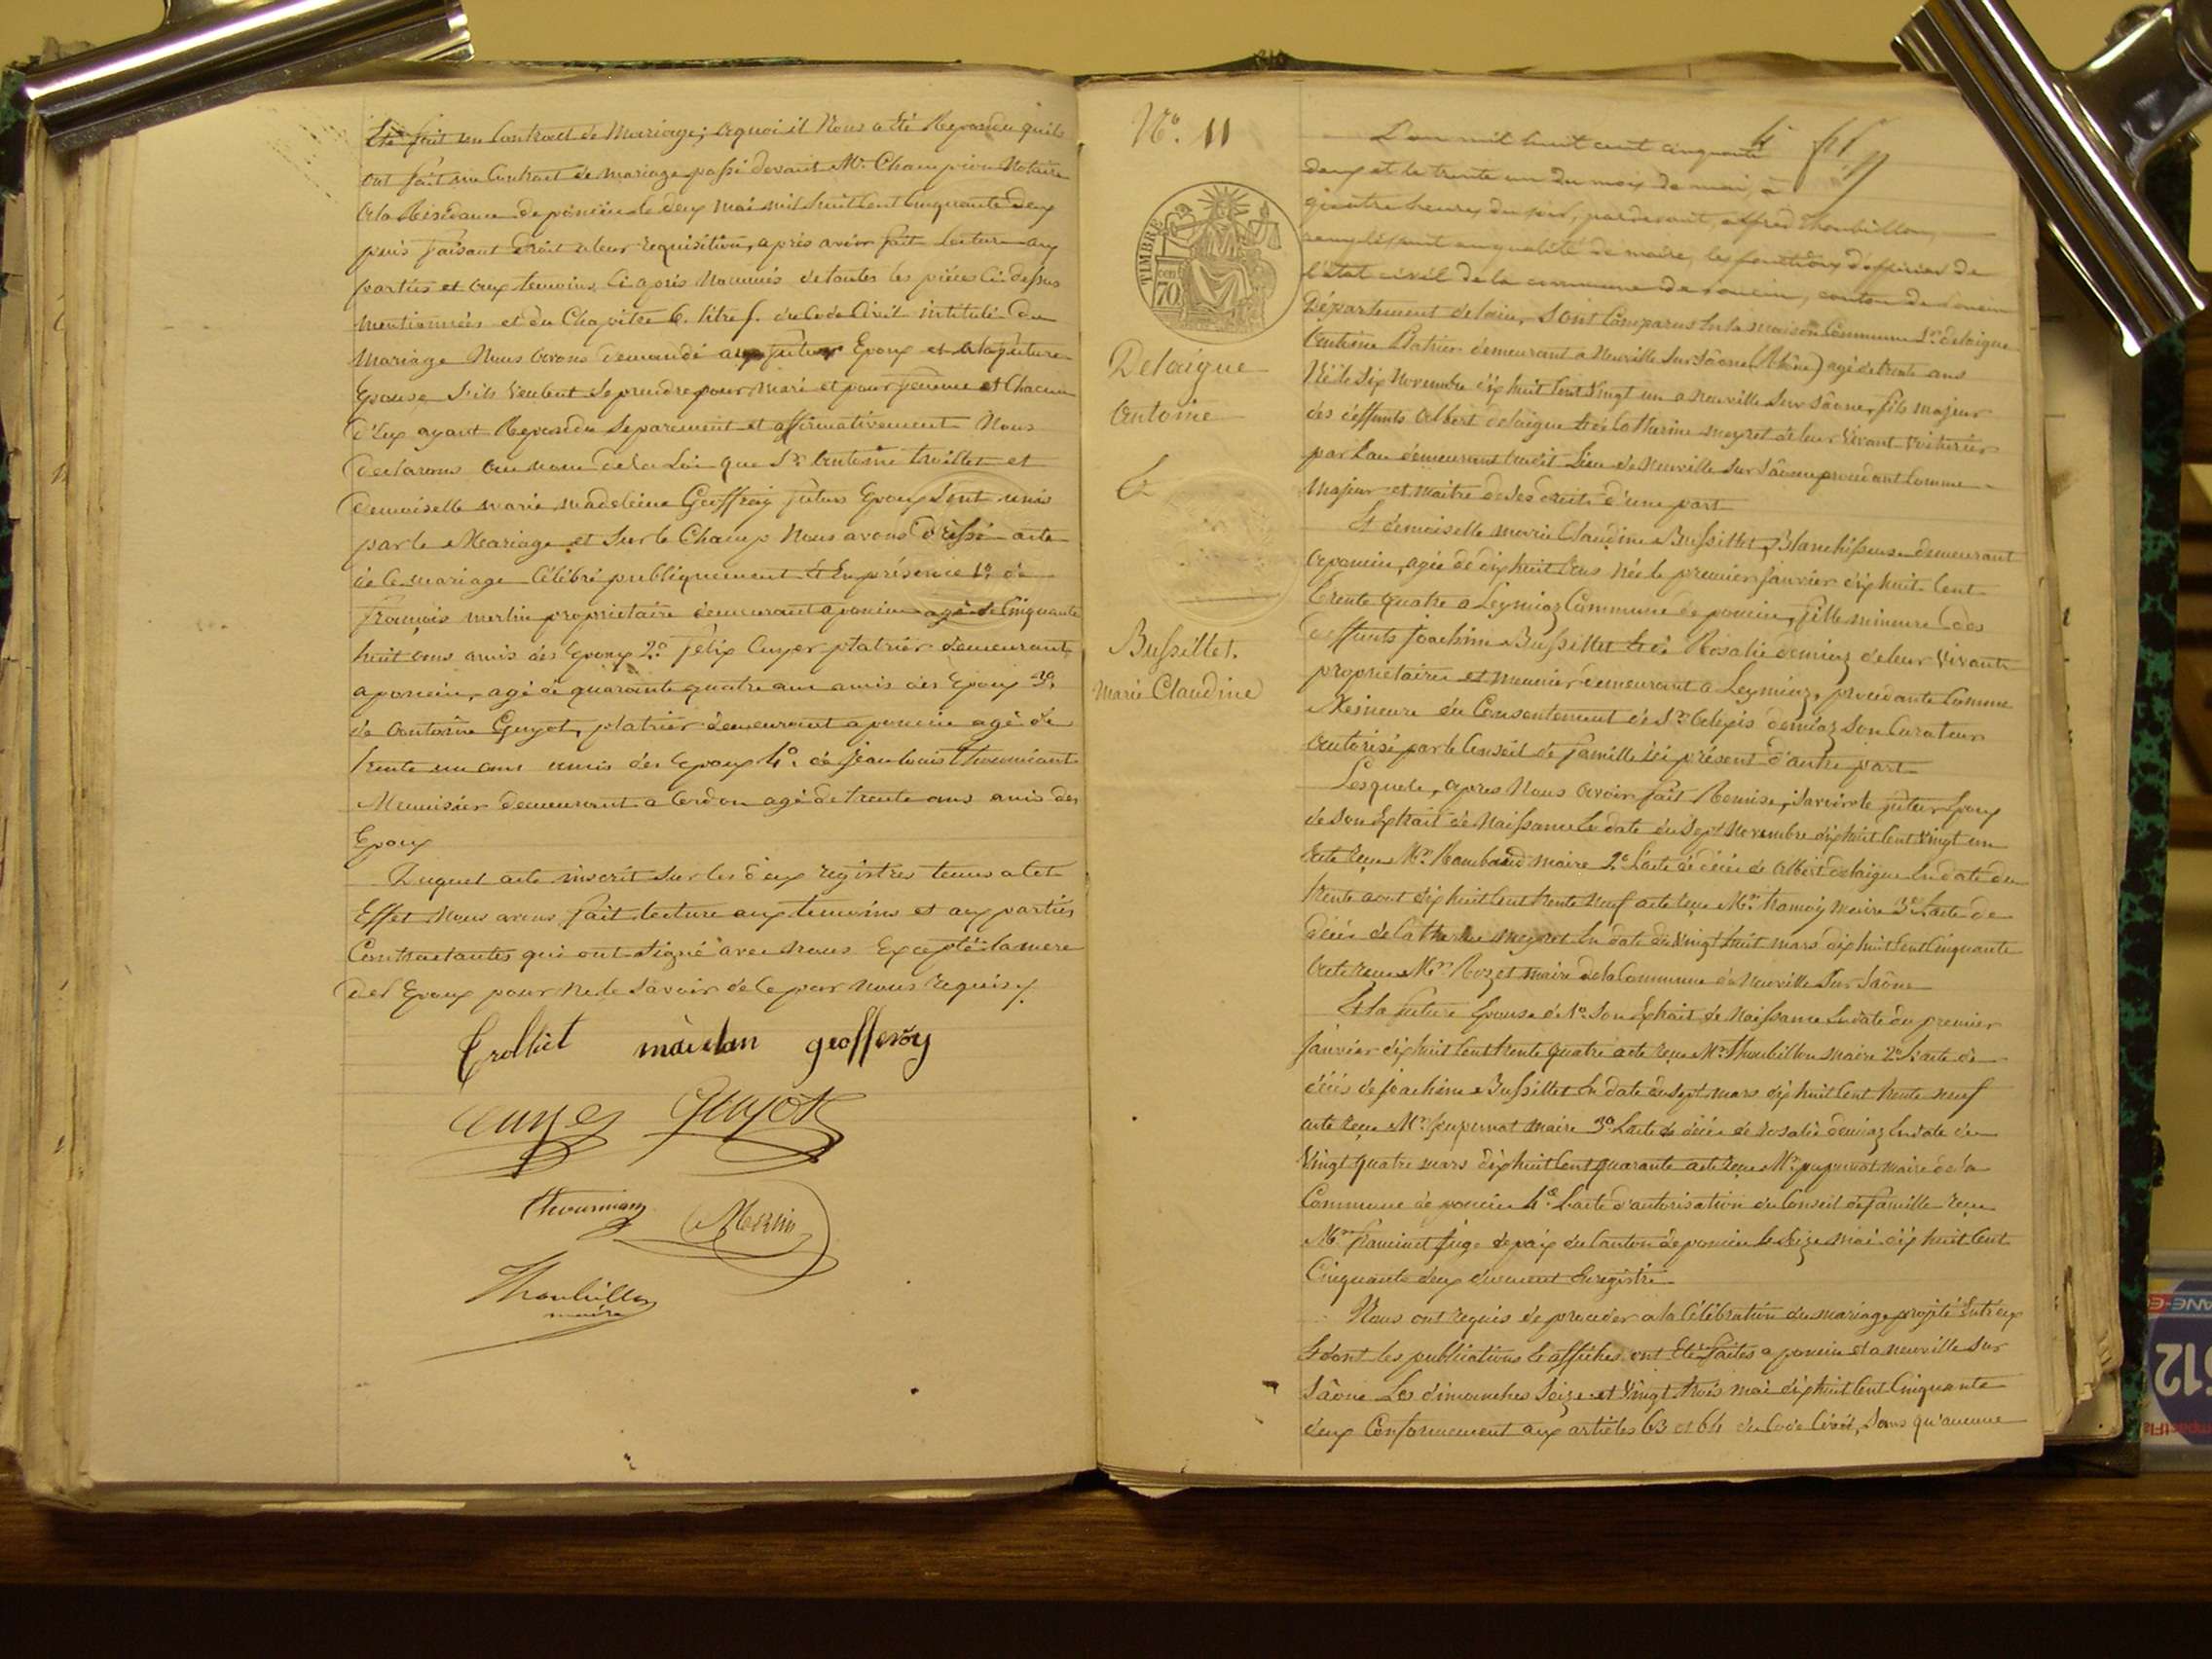 Été fait un Contract de Mariage; aquoi il Nous a été Repondu quils
ont fait un Contract de mariage passé devant Mr. Champion Notaire
a la Résidance de poncin le deux mai mil huit cent Cinquante deux
puis faisant droit a leur requisition, après avoir fait lecture aux
parties et aux temoins Ci après Nommés de toutes les pièces Ci dessus
Mentionnées et du Chapitre 6. titre 5. du Code Civil intitulé du
Mariage Nous Avons demandé au futur Epoux et a la future
Epouse S'ils Veulent se prendre pour Mari et pour femme et Chacun
d'Eux ayant Repondu Separement et affirmativement Nous
declarons au nom de la Loi que Sr. Antoine trolliet et
demoiselle marie madeleine Geoffray futurs Epoux Sont unis
par le Mariage et Sur le Champ Nous avons dréssé acte
de Ce mariage Célébré publiquement Et En présence 1°. de
François merlin propriétaire demeurant a poncin agé de Cinquante
huit ans amis des Epoux 2°. Félix Cuyer platrier demeurant
a poncin, agé de quarante quatre ans amis des Epoux 3°.
de Antoine Guyot, platrier demeurant a poncin agé de
trente un ans amis des Epoux 4°. de Jean louis thourniant
Menuisier demeurant a Cerdon agé de trente ans amis des
Epoux
Duquel acte inscrit Sur les deux registres tenus a Cet
Effet Nous avons fait lecture aux temoins et aux parties
Contractantes qui ont Signé avec nous Excepté la mere
del Epoux pour ne le Savoir de Ce par nous requis
trolliet geofferoy
Cuyer Guyot
Merlin
Thoubillon
maire
N°. 11
TIMBRE
70
Delaigue
Antoine
&
Bussillet.
Marie Claudine
L'an mil huit cent cinquante
deux et le trente un du mois de mai, à
quatre heures du soir, pardevant, alfred Thoubillon,
remplissant en qualité de maire, les fonctions d'officier de
l'état civil de la commune de poncin, canton de poncin
Département de lain, Sont Comparus En la maison Commune Sr. delaigue
Antoine Platrier demeurant a Neuville Sur Sâone (Rhône) agé de trente ans
Né le Six Novembre dix huit Cent Vingt un a Neuville Sur Sâone, fils majeur
des deffunts Albert delaigue Et de Catherine meyret de leur Vivant Voiturier
par Eau demeurant audit Lieu de Neuville Sur Sâone procédant Comme
Majeur et maitre de Ses droits d'une part
Et demoiselle marie Claudine Bussillet, Blanchisseuse demeurant
a poncin, agée de dix huit ans née le premier Janvier dix huit Cent
trente quatre a Leymiaz Commune de poncin, fille mineure des
deffunts Joachim Bussillet Et de Rosalie demiaz de leur Vivant
propriétaires et meunier demeurant a Leymiaz, procedante Comme
Mineure du Consentement de Sr. Alexis demiaz Son Curateur
autorisé par le Conseil de famille ici présent d'autre part
Lesquels, apres Nous avoir fait Remise, Savoir le futur Epoux
de Son Extrait de Naissance En date du Sept Novembre dix huit Cent Vingt un
acte reçu Mr. Rambaud maire 2°. L'acte de décès de Albert delaigue En date du
trente aout dix huit Cent trente Neuf acte reçu Mr. Maire 3°. L'acte de
décès de Catherine meyret En date du Vingt huit mars dix huit Cent Cinquante
acte reçu Mr. Rozet maire de la Commune de Neuville Sur Sâone
Et la future Epouse de 1°. Son Extrait de Naissance En date du premier
Janvier dix huit Cent trente quatre acte reçu Mr. Thoubillon Maire 2°. L'acte de
décès de Joachim Bussillet En date du Sept mars dix huit Cent trente neuf
acte reçu Mr. maire 3°. L'acte de décès de rosalie demiaz En date du
Vingt quatre mars dix huit Cent quarante acte reçu Mr. maire de la
Commune de poncin 4°. L'acte d'autorisation du Conseil de famille reçu
Mr. Juge de paix du Canton de poncin le Seize mai dix huit Cent
Cinquante deux duement Enregistré
Nous ont requis de proceder a la Célébration du mariage projeté Entr'eux
Et dont les publications & affiches ont Eté faites a poncin et a neuville Sur
Sâone Les dimanches Seize et Vingt trois mai dix huit Cent Cinquante
deux Conformement aux articles 63 et 64 du Code Civil, Sans qu'aucune